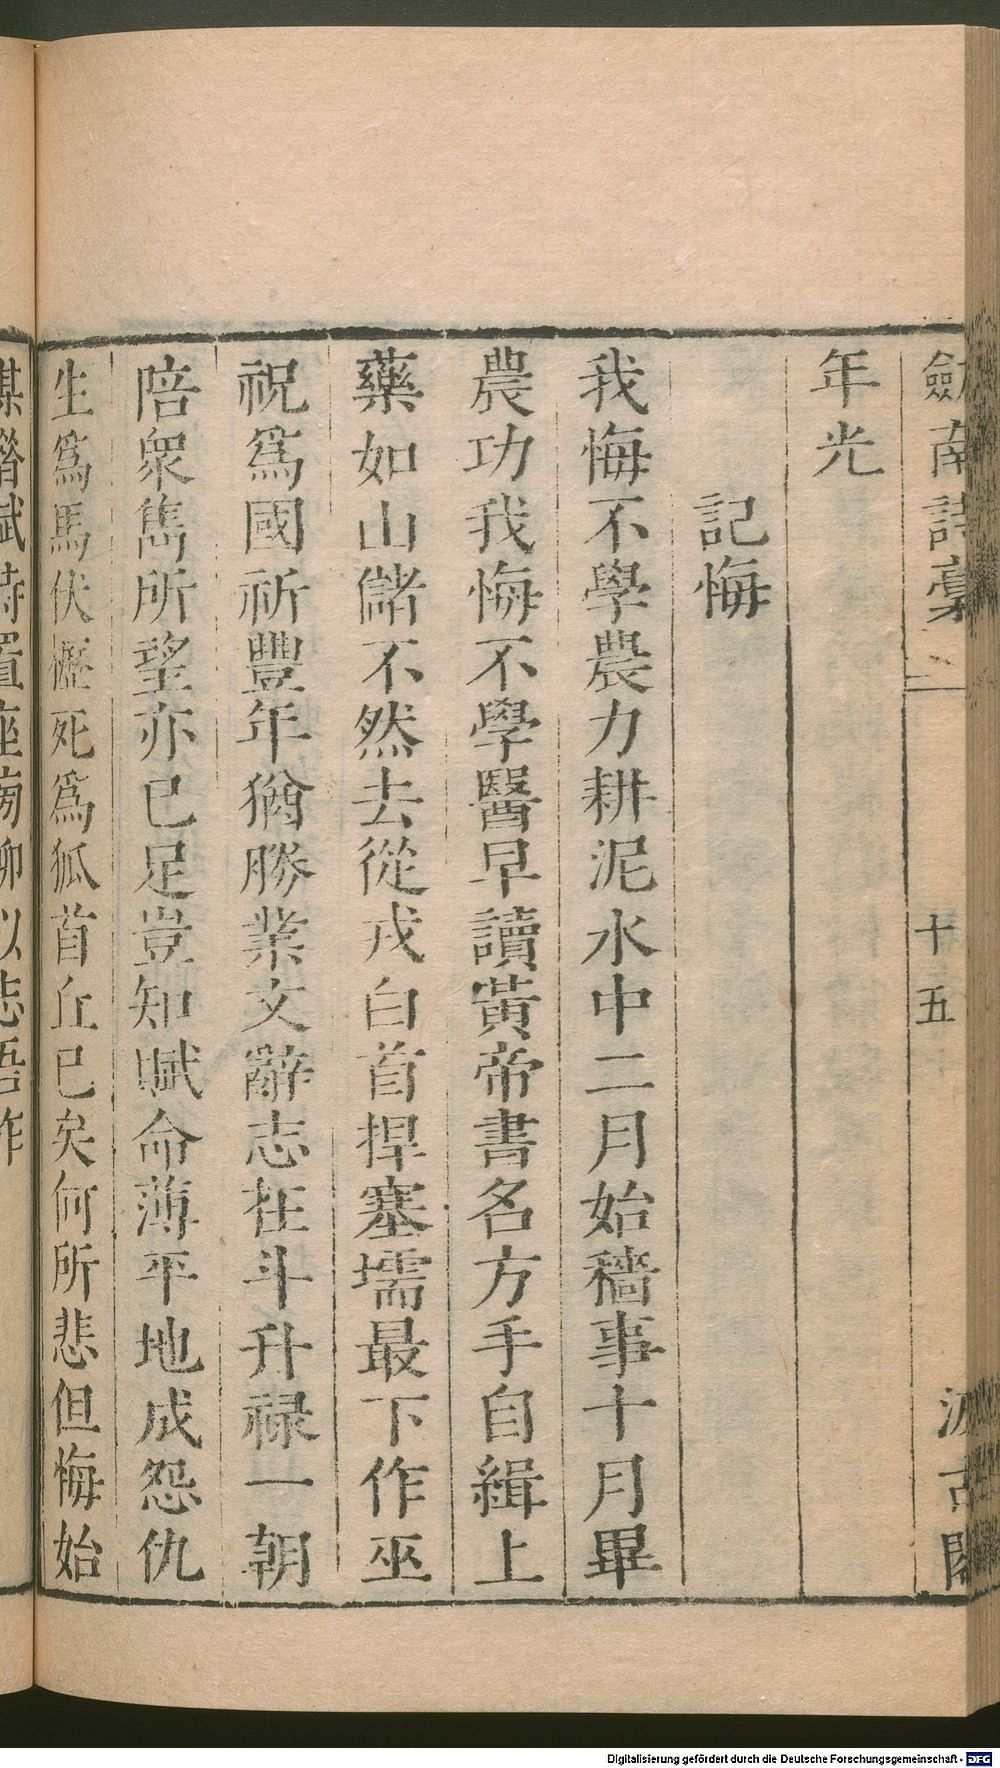 劒南詩槀
十五
汲古閣
年光
記悔
我悔不學農力耕泥水中二月始穡事十月畢
農功我悔不學醫早讀黃帝書名方手自緝上
藥如山儲不然去從戎白首捍塞壖最下作巫
祝爲國祈豐年猶勝業文辭志在斗升祿一朝
陪衆雋所望亦已足豈知賦命薄平地成怨仇
生爲馬伏櫪死爲狐首丘已矣何所悲但悔始
謀
時置座
以
吾作
Digitalisierung gefördert durch die Deutsche Forschungsgemeinschaft - DFG